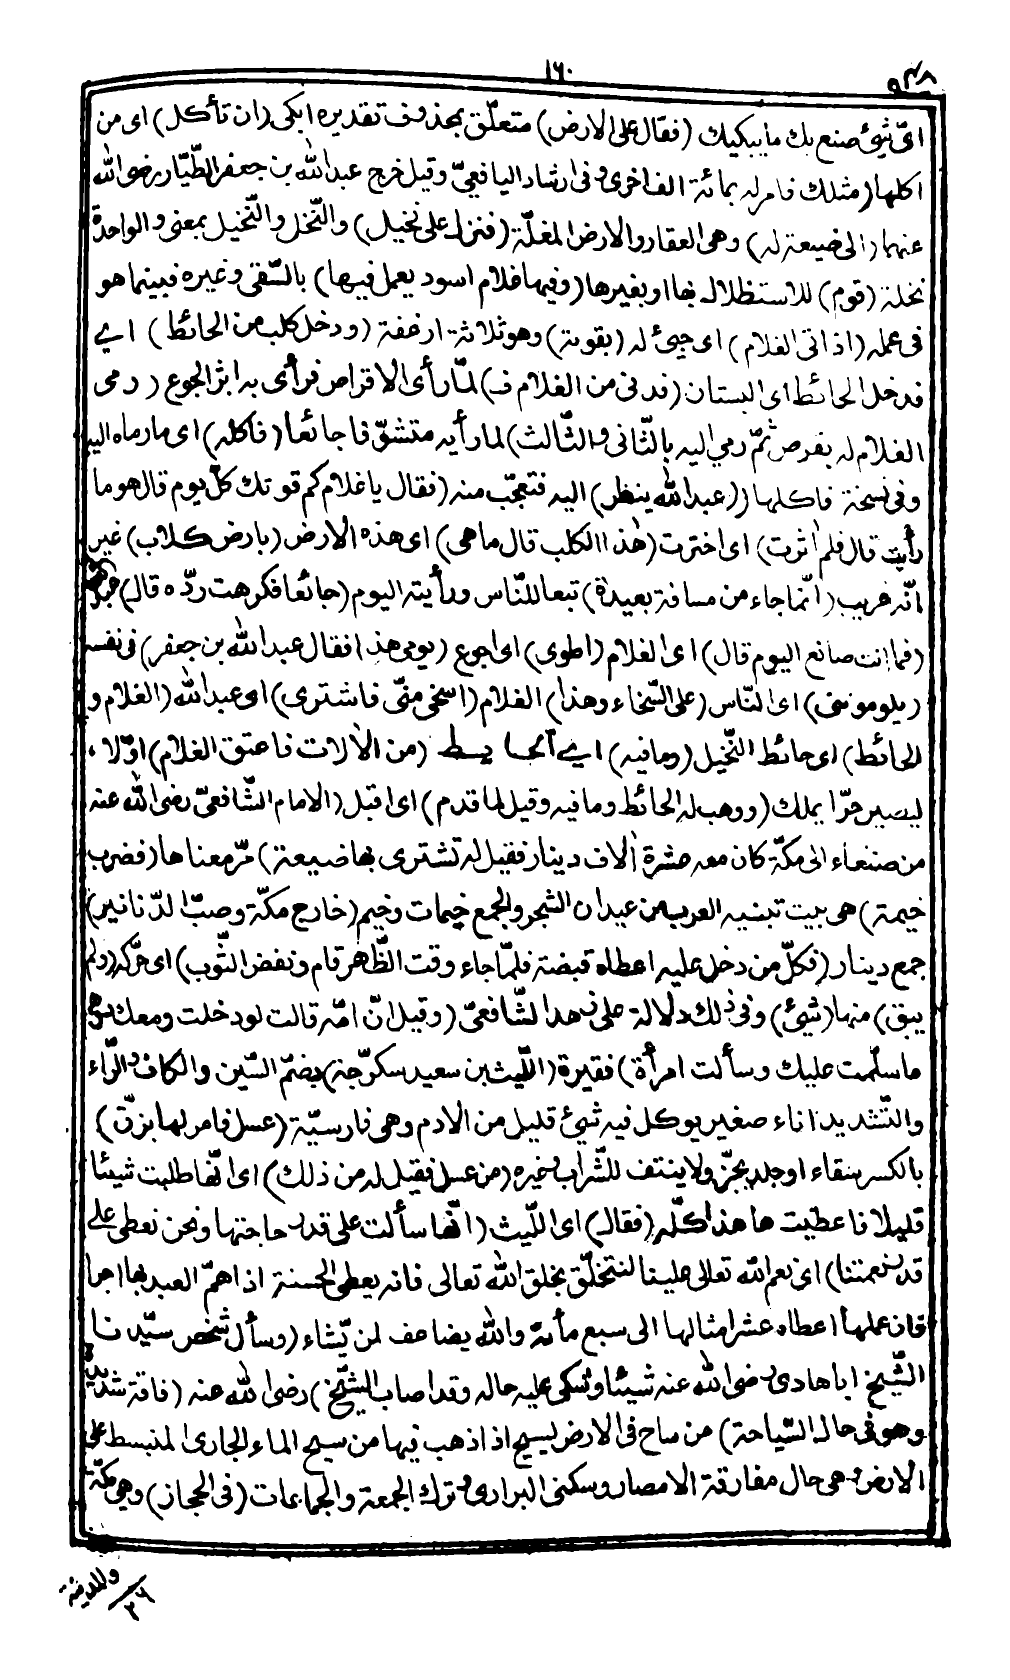 ١٦٠
اىّ شيئ صنع بك ما يبكيك (فقال على الارض) متعلّق بمحذوف تقديره ابكى (ان تأكل) اى من
اكلها (مثلك فامر له بمائة الف اخرى) و فى ارشاد اليافعىّ وقيل خرج عبد الله بن جعفر الطّيّار رضى الله
عنهما (الى ضيعة له) وهى العقار والارض المغلّة (فنزل على نخيل) والنّخل والنّخيل بمعنى والواحدة
نخلة (قوم) للاستظلال بها او بغيرها (وفيها غلام اسود يعمل فيها) بالسّقى وغيره فبينما هو
فى عمله (اذ اتى الغلام) اى جيئ له (بقوته) وهو ثلاثة ارغفة (ودخل كلب من الحائط) اى
قد دخل الحائط اى البستان (فدنى من الغلام ف) لمّا رأى الاقراص فرأى به اثر الجوع (رمى
الغلام له بقرص ثمّ رمى اليه بالثّانى والثّالث) لما رأيه متشوّفا جائعا (فاكله) اى ما رماه اليه
وفى نسخة فاكلها (وعبد الله ينظر) اليه فتعجّب منه (فقال يا غلام كم قوتك كلّ يوم قال هو ما
رأيت قال فلم اٰثرت) اى اخترت (هٰذا الكلب قال ما هى) اى هذه الارض (بارض كلاب) غير
انّه غريب (انّما جاء من مسافة بعيدة) تبعا للنّاس ورأيته اليوم (جائعا فكرهت ردّه قال)
(فما انت صانع اليوم قال) اى الغلام (اطوى) اى اجوع (يومى هذا فقال عبد الله بن جعفر) فى نفسه
(يلوموننى) اى النّاس (على السّخاء وهذا) الغلام (اسخى منّى فاشترى) اى عبد الله (الغلام و
الحائط) اى حائط النّخيل (وما فيه) اى الحائط (من الاٰلات فاعتق الغلام) اوّلا
ليصير حرّا يملك (ووهب له الحائط وما فيه وقيل لما قدم) اى اقبل (الامام الشّافعىّ رضى الله عنه
من صنعاء الى مكّة كان معه عشرة اٰلاف دينار فقيل له تشترى بها ضيعة) مرّ معناها (فضرب
خيمة) هى بيت تبنيه العرب من عيدان الشّجر والجمع خيمات وخيم (خارج مكّة وصبّ الدّنانير)
جمع دينار (فكلّ من دخل عليه اعطاه قبضة فلمّا جاء وقت الظّهر قام ونفض الثّوب) اى حرّكه (ولم
يبق) منها (شيئ) وفى ذلك دلالة على زهد الشّافعىّ (وقيل انّ امّه قالت لو دخلت ومعك
ما سلّمت عليك وسألت امرأة) فقيرة (اللّيث بن سعيد سكرّجة) بضمّ السّين والكاف والرّاء
والتّشديد اناء صغير يوكل فيه شيئ قليل من الادم وهى فارسيّة (عسل فامر لها بزقّ)
بالكسر سقاء او جلد يجزّ ولا ينتف للشّراب وغيره (من عسل فقيل له من ذلك) اى انّها طلبت شيئا
قليلا فاعطيت ها هذا كلّه (فقال) اى اللّيث (انّها سألت على قدر حاجتها ونحن نعطى على
قدر نعمتنا) اى نعم الله تعالى علينا لنتخلّق بخلق الله تعالى فانه يعطى الحسنة اذا همّ العبد بها اجرا
فان عملها اعطاه عشر امثالها الى سبع مأئة والله يضاعف لمن يّشاء (وسأل شخص سيّدنا
الشّيخ ابا هادى رضى الله عنه شيئا وشكى عليه حاله وقد اصاب الشّيخ) رضى الله عنه (فاقة شديدة
وهو فى حال السّياحة) من ساح فى الارض يسيح اذا ذهب فيها من سيح الماء الجارى المنبسط على
الارض وهى حال مفارقة الامصار وسكنى البرارى وترك الجمعة والجماعات (فى الحجاز) وهى مكّة
والمدينة
٢٦